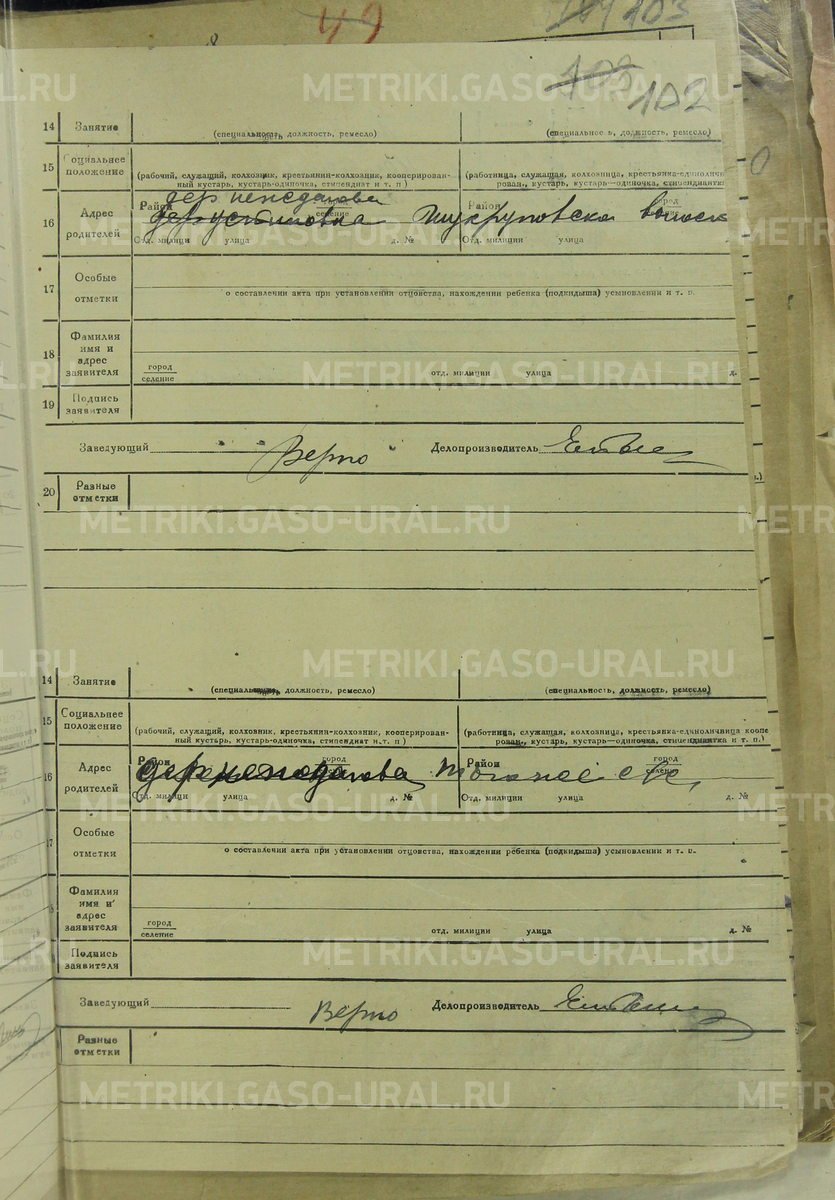 49
103
102
14 Занятие (специальность, должность, ремесло) (специальность, должность, ремесло)
15 Социальнее положение (рабочий, служащий, колхозник, крестьянин-колхозник, кооперирован- (работница, служащая, колхозница, крестьянка-единоличн
ный кустарь, кустарь-одиночка, стипендиат и т. п) рован., кустарь, кустарь—одиночка, стипендиантк
дер
16 Адрес родителей Район селение Район город
Отд. милици улица д. № Отд. милиции улица
17 Особые отметки о составлении акта при установлении отцовства, нахождении ребенка (подкидыша) усыновлении и т. п.
18 Фамилия имя и адрес заявителя город селение отд. милиции улица д.
19 Подпись заявителя
Заведующий Верно Делопроизводитель
20 Разные отметки
14 Занятие (специальность, должность, ремесло) (специальность, должность, ремесло)
15 Социальнее положение (рабочий, служащий, колхозник, крестьянин-колхозник, кооперирован- (работница, служащая, колхозница, крестьянка-единоличница коопе
ный кустарь, кустарь-одиночка, стипендиат и т. п) рован., кустарь, кустарь—одиночка, стипендиантка и т. п.)
16 Адрес родителей Район город дер Район город селение
Отд. милиции улица д. № Отд. милиции улица д. №
17 Особые отметки о составлении акта при установлении отцовства, нахождении ребенка (подкидыша) усыновлении и т. п.
Фамилия имя и адрес заявителя город селение отд. милиции улица д. №
Подпись заявителя
Заведующий Верно Делопроизводитель
Разные отметки
METRIKI.GASO-URAL.RU